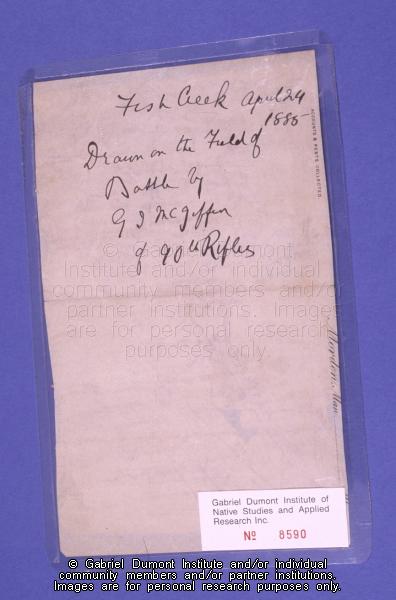 Fish Creek April 24
1885
Drawn on the Field of
Battle by
G I McGiffin
of 90th Rifles
ACCOUNTS & RENTS COLLECTED.
Morden, Man
© Gabriel Dumont
Institute and/or individual
community members and/or
partner institutions. Images
are for personal research
purposes only.
Gabriel Dumont Institute of
Native Studies and Applied
Research Inc.
No 8590
© Gabriel Dumont Institute and/or individual
community members and/or partner institutions.
Images are for personal research purposes only.